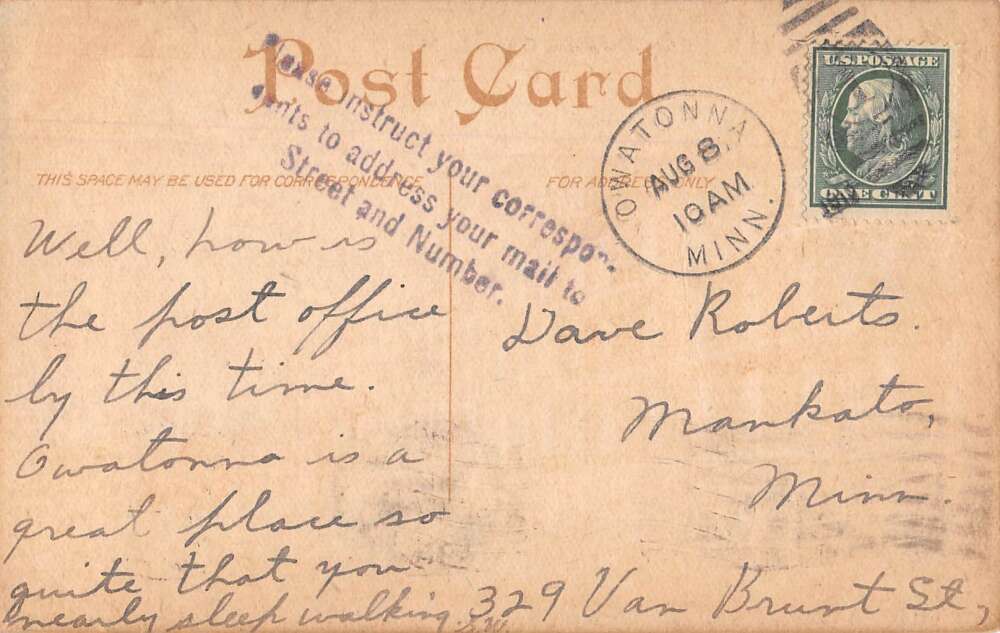 Post Card
Please instruct your correspon-
dents to address your mail to
Street and Number.
THIS SPACE MAY BE USED FOR CORRESPONDENCE
FOR ADDRESS ONLY
OWATONNA
AUG 8
10 AM
MINN.
U.S. POSTAGE
ONE CENT
Well, how is
the post office
by this time.
Owatonna is a
great place so
quite that you
nearly sleep walking.
Dave Roberts.
Mankato,
Minn.
329 Van Brunt St,